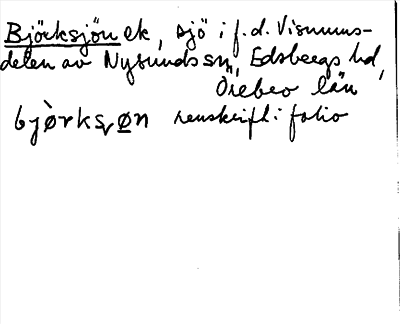 Björksjön ek, sjö i f.d. Visnums-
delen av Nysunds sn, Edsbergs hd,
Örebro län
bjòrksọøn renskrift i folio